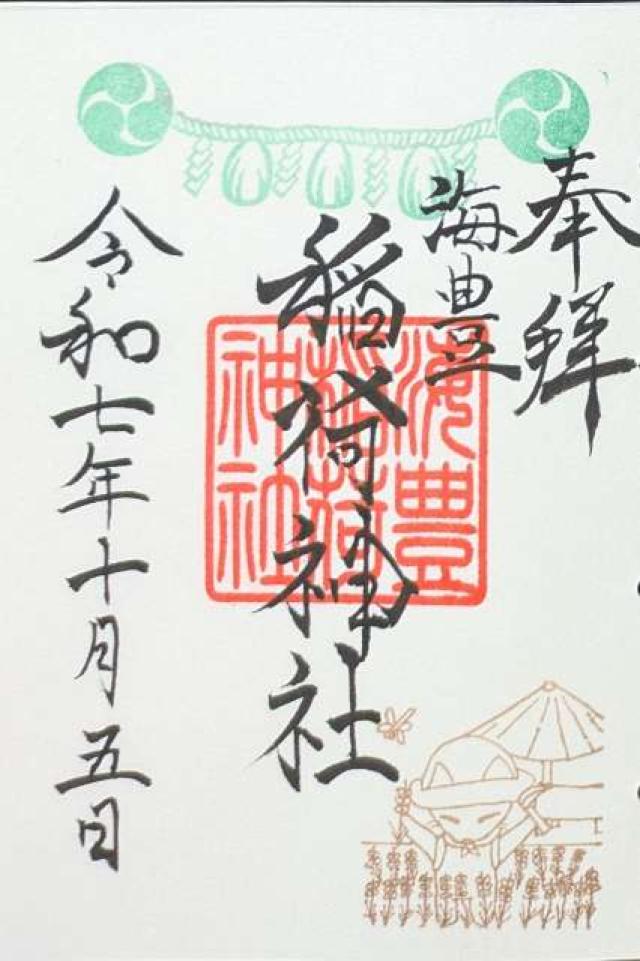 奉拝
海豊
稲荷神社
海豊
稲荷
神社
令和七年十月五日